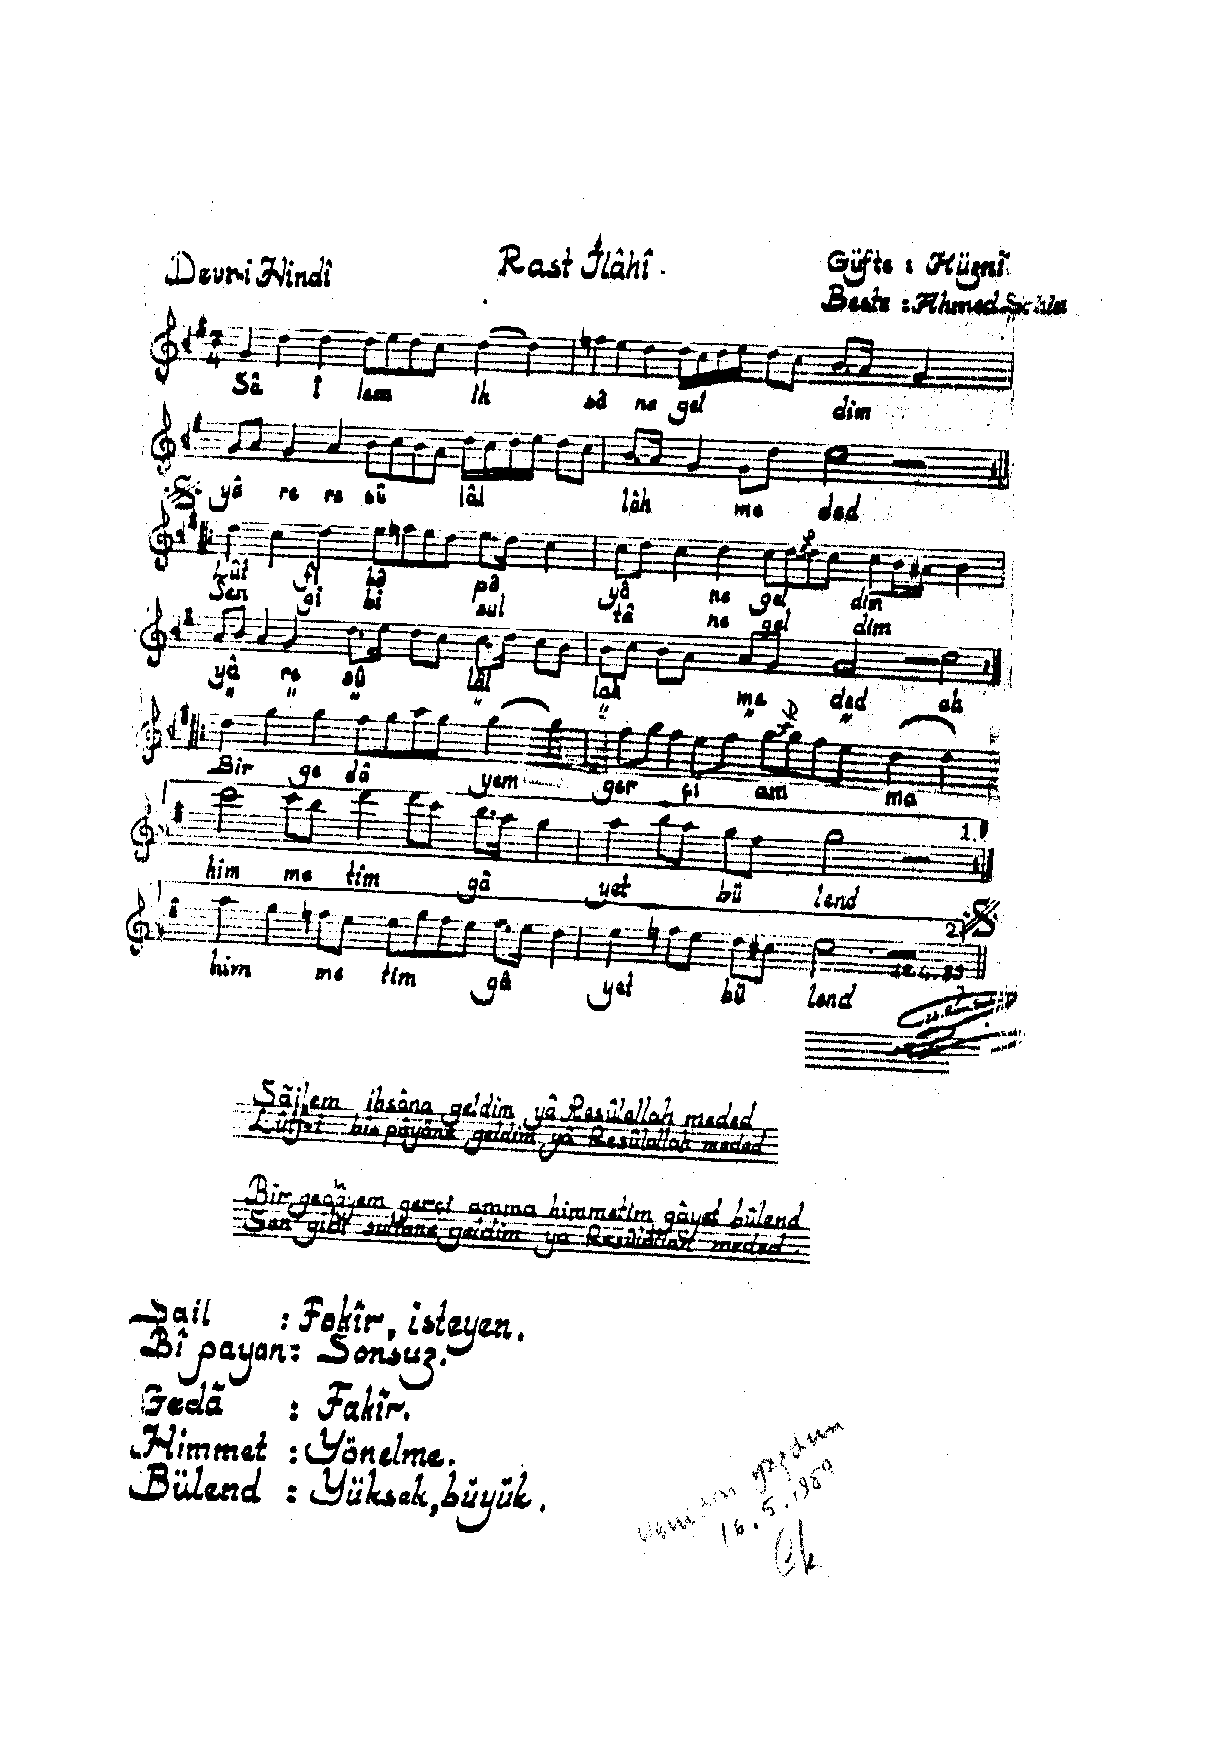 Devr-i Hindî
Rast İlâhî.
Güfte : Hüznî
Beste : Ahmed
7
4
Sâ î lem ih sâ ne gel dim
yâ re re sû lâl lâh me ded
fî bâ pâ yâ ne gel dim
Sen gi bi sul tâ ne gel dim
yâ re sû lâl lah me ded ah
" " " " " " "
Bir ge dâ yem ger çi am ma
1.
him me tim gâ yet bü lend
2.
him me tim gâ yet bü lend
Sâilem ihsâna geldim yâ Resûlallah meded
Lûtfet bîs pâyâne geldim yâ Resûlallah meded
Bir gedâyem gerçi amma himmetim gâyet bülend
Sen gibi sultane geldim ya Resûlallah meded.
Sail : Fakîr, isteyen.
Bî payan: Sonsuz.
Gedâ : Fakîr.
Himmet : Yönelme.
Bülend : Yüksek, büyük.
yazdım
16.5.1989